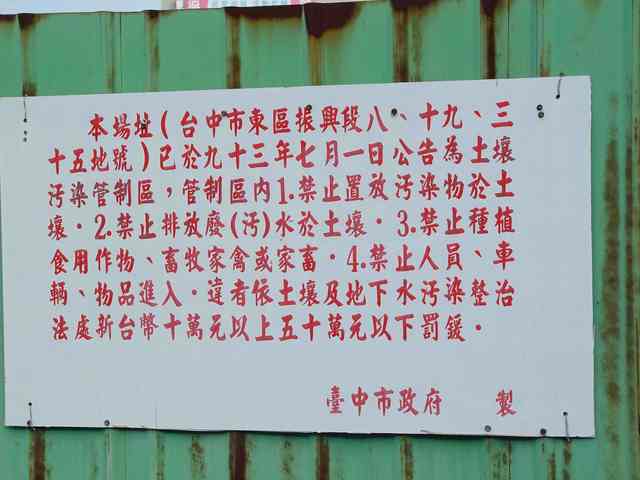 本場址(台中市東區振興段八、十九、三
十五地號)已於九十三年七月一日公告為土壤
汚染管制區，管制區內1.禁止置放汚染物於土
壤．2.禁止排放廢(汚)水於土壤．3.禁止種植
食用作物、畜牧家禽或家畜．4.禁止人員、車
輛、物品進入．違者依土壤及地下水汚染整治
法處新台幣十萬元以上五十萬元以下罰鍰．
臺中市政府　製